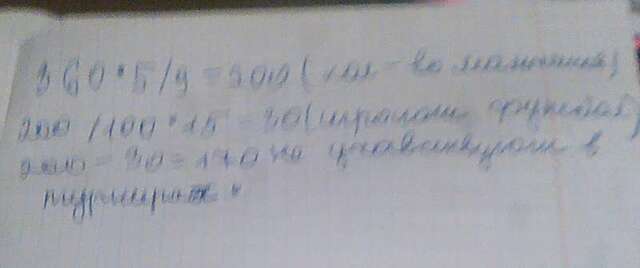 360*5/9=200(кол-во мальчиков)
200/100*15=30(играют футбол)
200-30=170 не участвуют в
турнирах